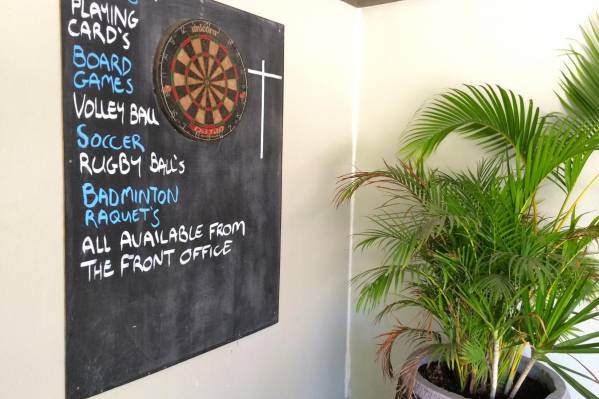 PLAYING
CARD'S
BOARD
GAMES
VOLLEY BALL
SOCCER
RUGBY BALL'S
BADMINTON
RAQUET'S
ALL AVAILABLE FROM
THE FRONT OFFICE